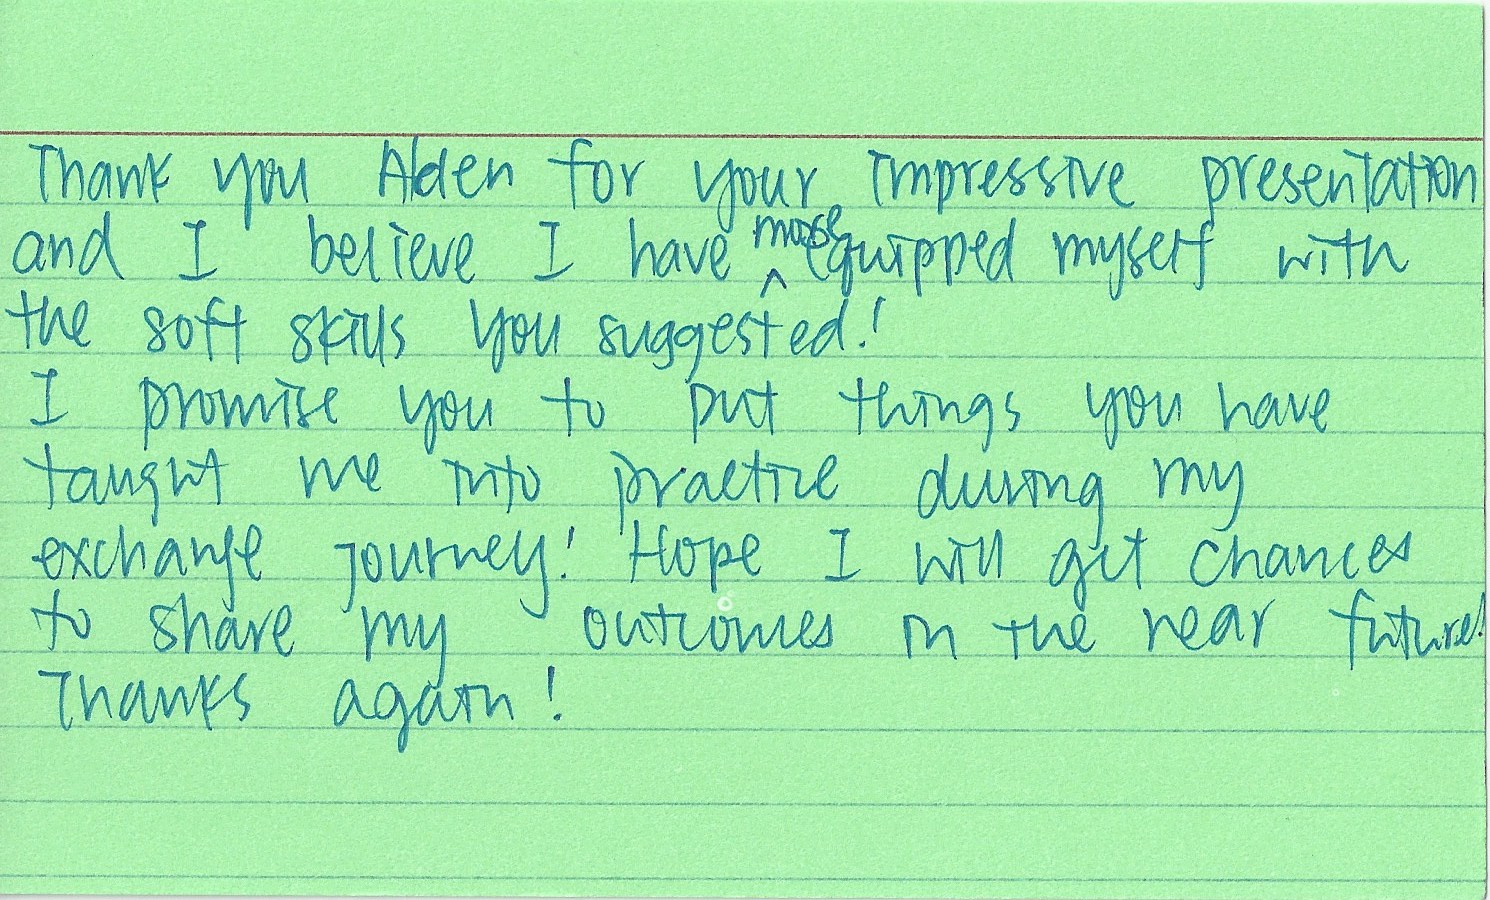 Thank you Alden for your impressive presentation
and I believe I have more equipped myself with
the soft skills you suggested!
I promise you to put things you have
taught me into practice during my
exchange journey! Hope I will get chances
to share my outcomes in the near future!
Thanks again!